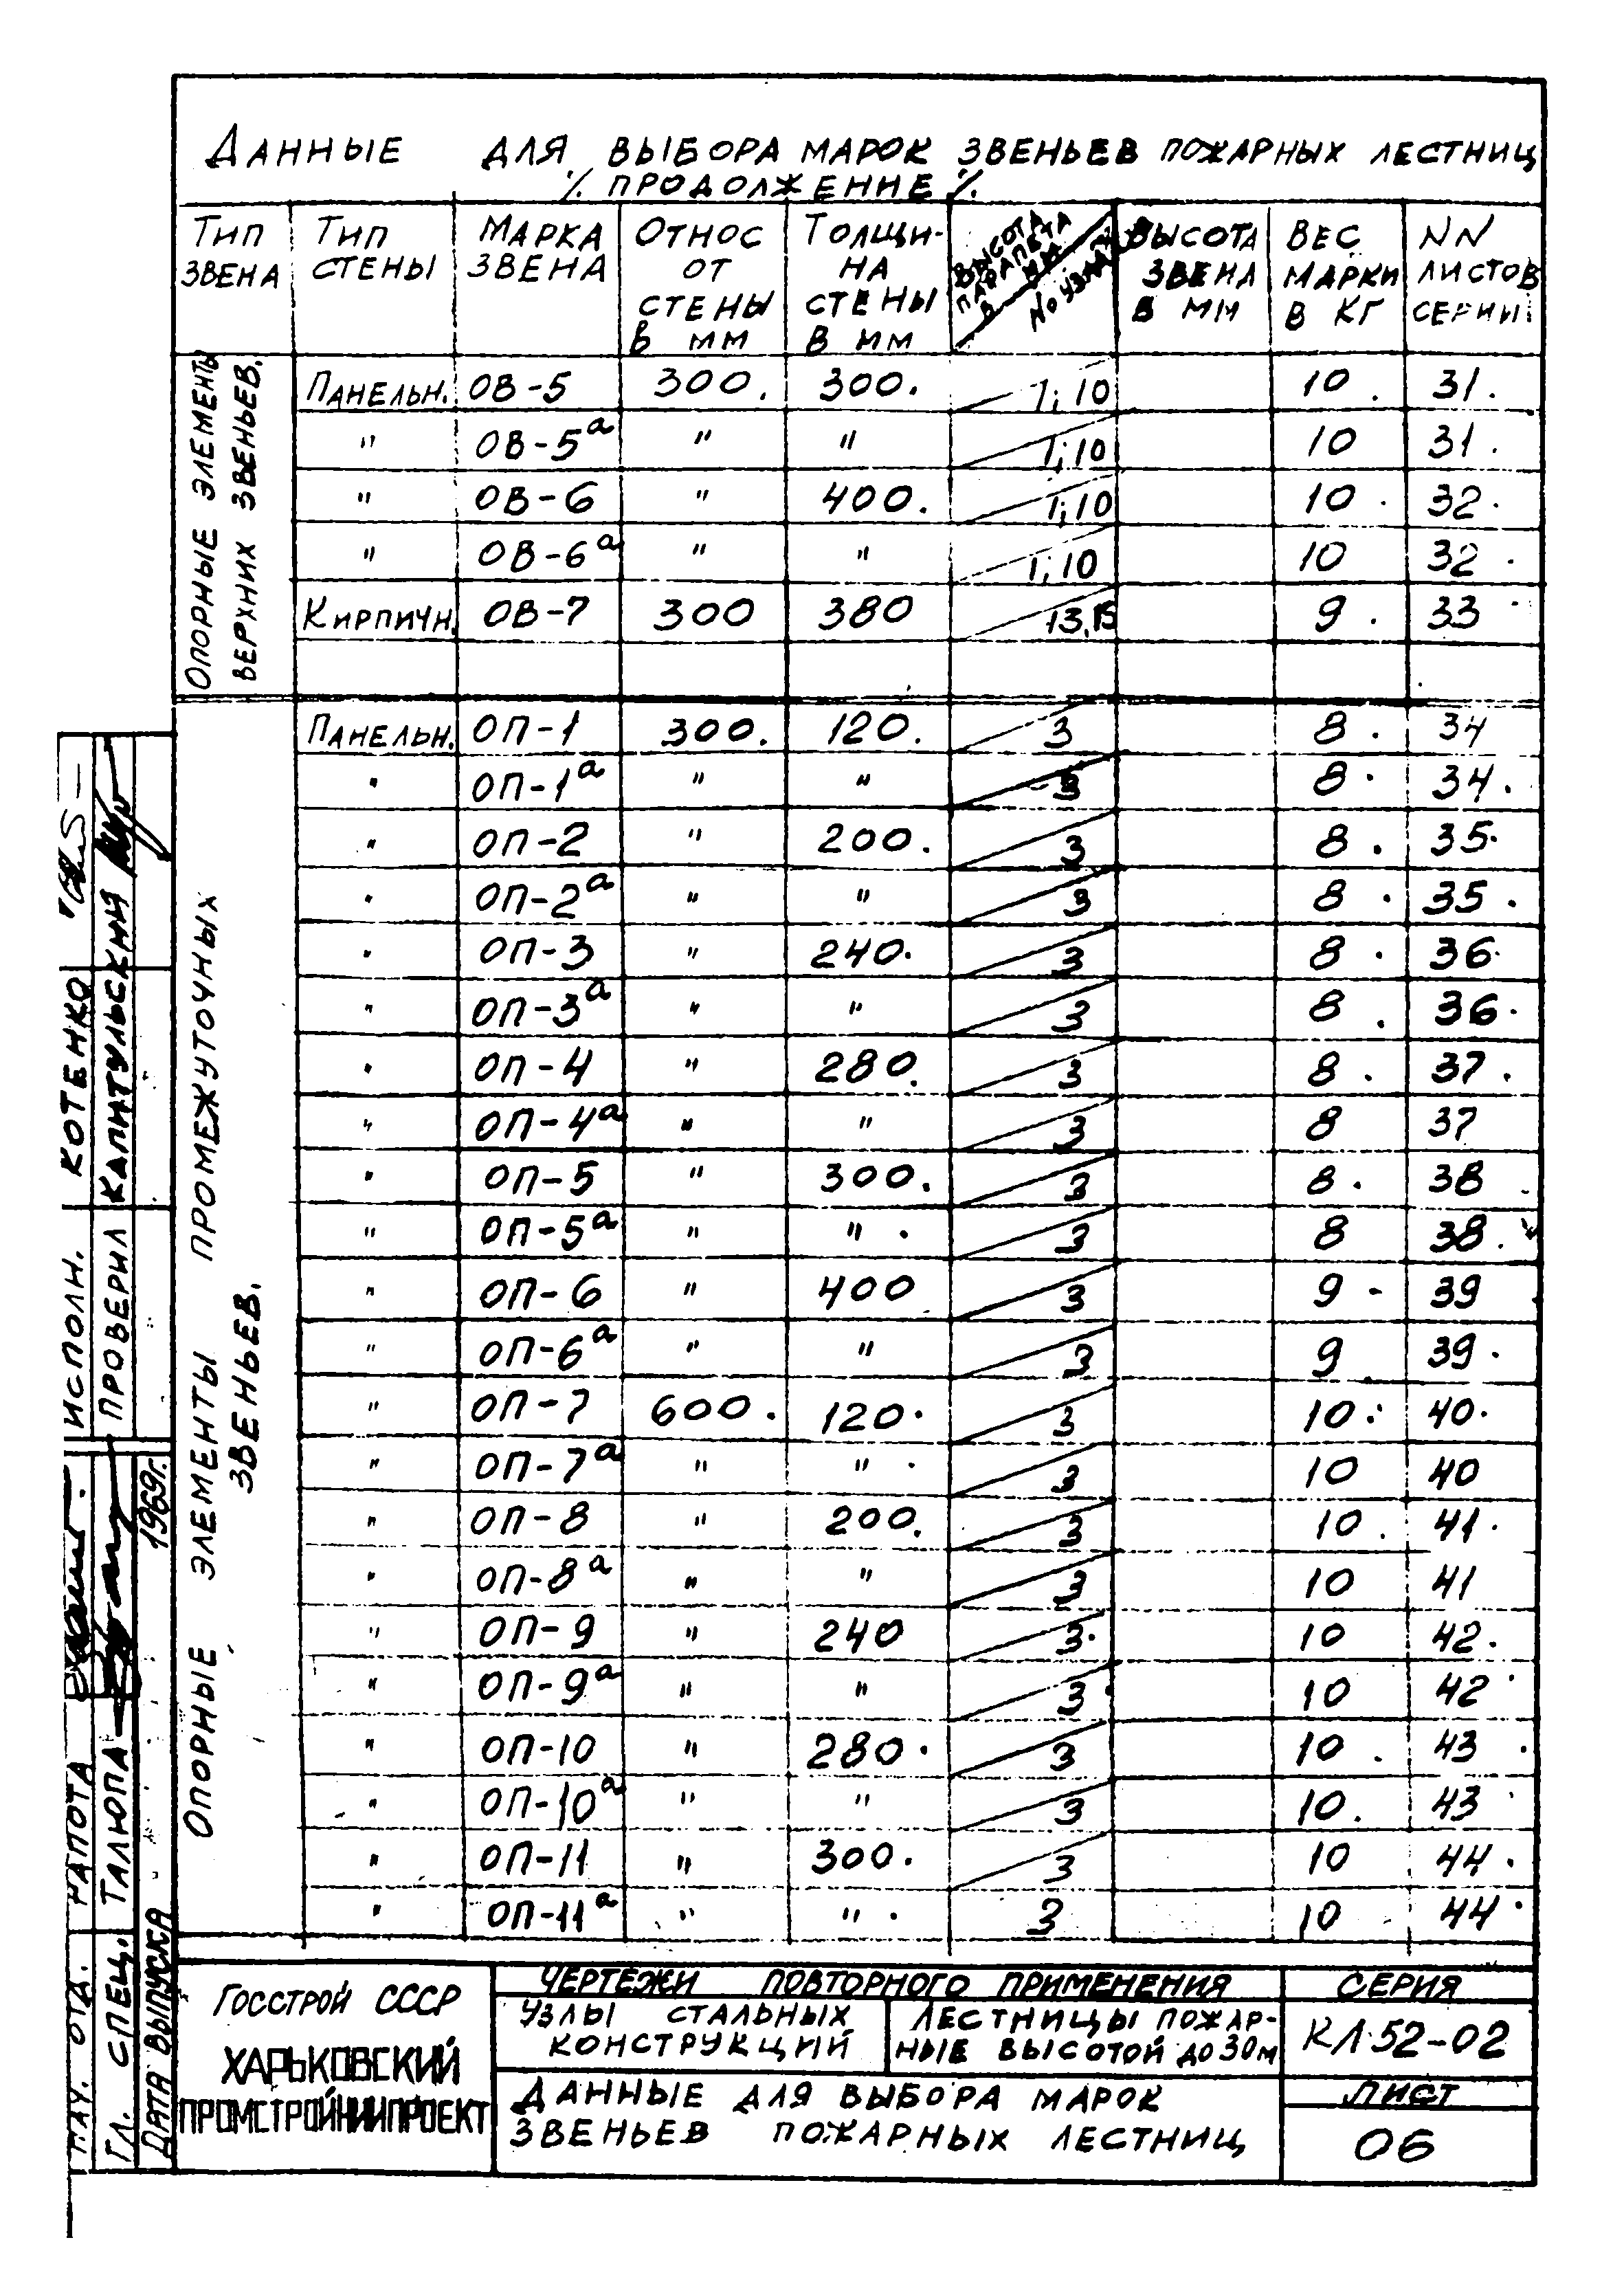 ДАННЫЕ ДЛЯ ВЫБОРА МАРОК ЗВЕНЬЕВ ПОЖАРНЫХ ЛЕСТНИЦ
٪ ПРОДОЛЖЕНИЕ ٪.
ТИП ЗВЕНА | ТИП СТЕНЫ | МАРКА ЗВЕНА | ОТНОС ОТ СТЕНЫ В ММ | ТОЛЩИ-НА СТЕНЫ В ММ | ВЫСОТА ПАРАПЕТА В ММ / № УЗЛА | ВЫСОТА ЗВЕНА В ММ | ВЕС МАРКИ В КГ | NN ЛИСТОВ СЕРИИ
ОПОРНЫЕ ЭЛЕМЕНТЫ ВЕРХНИХ ЗВЕНЬЕВ.
ПАНЕЛЬН. ОВ-5 300. 300. 1; 10 10. 31.
" ОВ-5а " " 1; 10 10 31.
" ОВ-6 " 400. 1; 10 10. 32.
" ОВ-6а " " 1; 10 10 32.
КИРПИЧН. ОВ-7 300 380 13,15 9. 33
ОПОРНЫЕ ЭЛЕМЕНТЫ ПРОМЕЖУТОЧНЫХ ЗВЕНЬЕВ.
ПАНЕЛЬН. ОП-1 300. 120. 3 8. 34
" ОП-1а " " 3 8. 34.
" ОП-2 " 200. 3 8. 35.
" ОП-2а " " 3 8. 35.
" ОП-3 " 240. 3 8. 36.
" ОП-3а " " 3 8. 36.
" ОП-4 " 280. 3 8. 37.
" ОП-4а " " 3 8 37
" ОП-5 " 300. 3 8. 38
" ОП-5а " " . 3 8 38.
" ОП-6 " 400 3 9 - 39
" ОП-6а " " 3 9 39.
" ОП-7 600. 120. 3 10. 40.
" ОП-7а " " . 3 10 40
" ОП-8 " 200. 3 10. 41.
" ОП-8а " " 3 10 41
" ОП-9 " 240 3. 10 42.
" ОП-9а " " 3 10 42
" ОП-10 " 280. 3 10. 43
" ОП-10а " " 3 10. 43
" ОП-11 " 300. 3 10 44.
" ОП-11а " " . 3 10 44
ИСПОЛН. КОТЕНКО
ПРОВЕРИЛ КАПИТУЛЬСКИЙ
НАЧ. ОТД. РАПОТА
ГЛ. СПЕЦ. ТАЛЮПА
ДАТА ВЫПУСКА 1969г.
ГОССТРОЙ СССР
ХАРЬКОВСКИЙ
ПРОМСТРОЙНИИПРОЕКТ
ЧЕРТЕЖИ ПОВТОРНОГО ПРИМЕНЕНИЯ
УЗЛЫ СТАЛЬНЫХ
КОНСТРУКЦИЙ
ЛЕСТНИЦЫ ПОЖАР-
НЫЕ ВЫСОТОЙ ДО 30 м
ДАННЫЕ ДЛЯ ВЫБОРА МАРОК
ЗВЕНЬЕВ ПОЖАРНЫХ ЛЕСТНИЦ
СЕРИЯ
КЛ 52-02
ЛИСТ
06